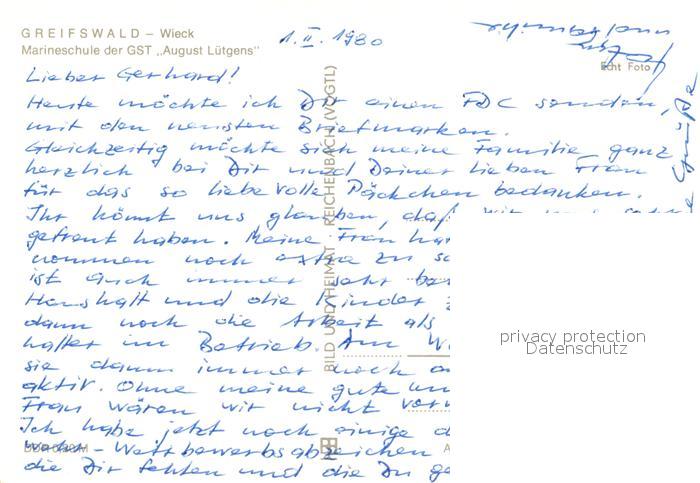 GREIFSWALD – Wieck
Marineschule der GST „August Lütgens"
1. II. 1980
Echt Foto
Lieber Gerhard!
Heute möchte ich Dir einen FDC senden,
mit den neusten Briefmarken.
Gleichzeitig möchte sich meine Familie ganz
herzlich bei Dir und Deiner lieben Frau
für das so liebevolle Päckchen bedanken.
Ihr könnt uns glauben, daß wir uns
gefreut haben. Meine Frau
nommen noch extra zu
ist auch immer sehr
Haushalt und die Kinder
dann noch die Arbeit als
halter im Betrieb. Am
sie dann immer noch
aktiv. Ohne meine gute
Frau wären wir nicht
Ich habe jetzt noch einige
Wettbewerbsabzeichen
die Dir fehlen und die Du
Grüße
BILD UND HEIMAT · REICHENBACH (VOGTL)
privacy protection
Datenschutz